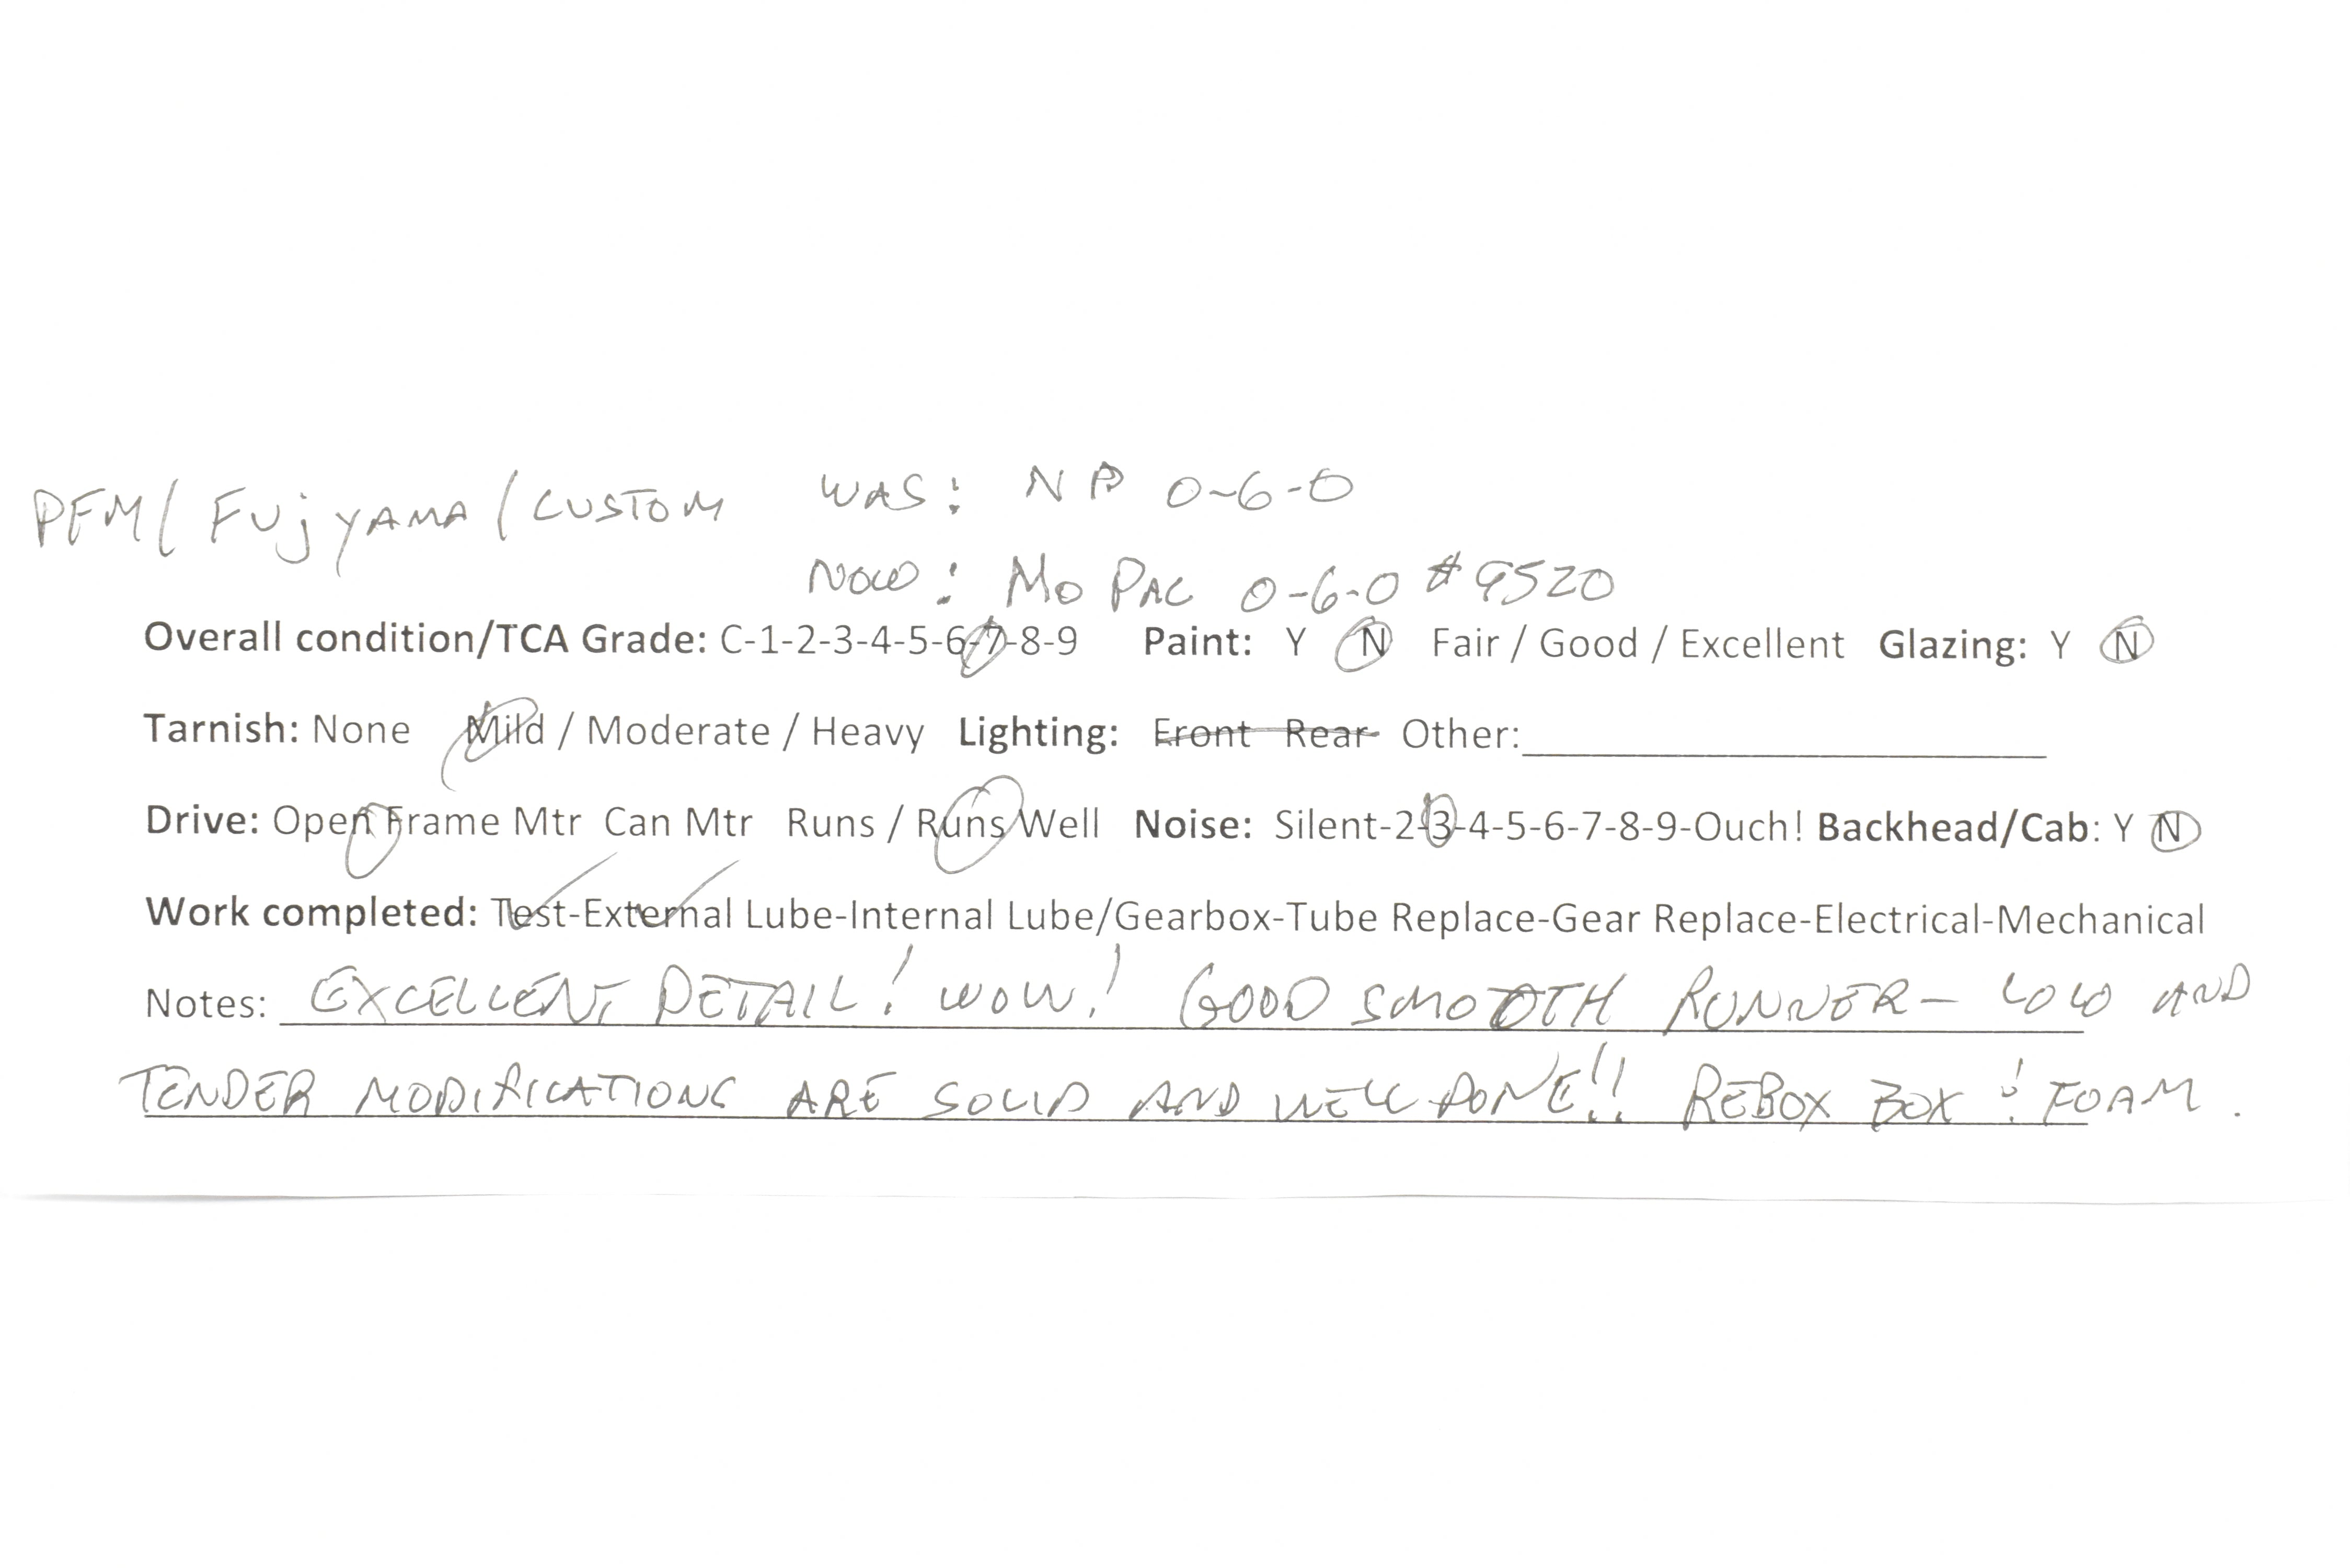 PFM/ FUjYAMA/CUSTOM WAS: NP 0-6-0
NOW: MO PAC 0-6-0 #9520
Overall condition/TCA Grade: C-1-2-3-4-5-6-7-8-9 Paint: Y N Fair / Good / Excellent Glazing: Y N
Tarnish: None Mild / Moderate / Heavy Lighting: Front Rear Other:
Drive: Open Frame Mtr Can Mtr Runs / Runs Well Noise: Silent-2-3-4-5-6-7-8-9-Ouch! Backhead/Cab: Y N
Work completed: Test-External Lube-Internal Lube/Gearbox-Tube Replace-Gear Replace-Electrical-Mechanical
Notes: EXCELLENT DETAIL! WOW! GOOD SMOOTH RUNNER- LOCO AND
TENDER MODIFICATIONS ARE SOLID AND WELL DONE!! REBOX BOX & FOAM.